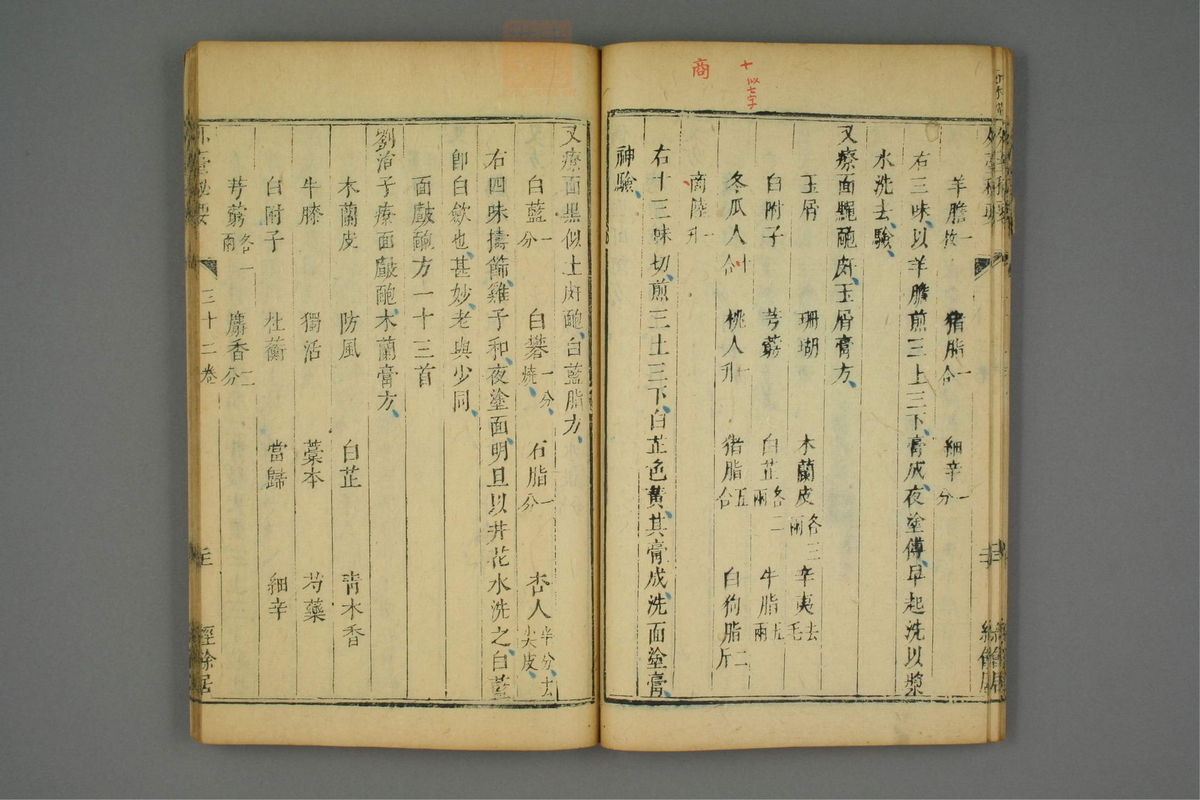 商
十似七字
羊膽一枚 猪脂一合 細辛一分
右三味以羊膽煎三上三下膏成夜塗傅早起洗以漿
水洗去驗
又療面䵟皰皯玉屑膏方
玉屑 珊瑚 木蘭皮各三兩 辛夷去毛
白附子 芎藭 白芷各二兩 牛脂五兩
冬瓜人十合 桃人一升 猪脂五合 白狗脂二斤
商陸一升
右十三味切煎三土三下白芷色黄其膏成洗面塗膏
神驗
又療面黑似土皯皰白藍脂方
白藍一分 白礬一分燒 石脂一分 杏人半分去尖皮
右四味擣篩雞子和夜塗面明旦以井花水洗之白藍
即白斂也甚妙老與少同
面皶皰方一十三首
劉涓子療面皶皰木蘭膏方
木蘭皮 防風 白芷 青木香
牛膝 獨活 藁本 芍藥
白附子 杜蘅 當歸 細辛
芎藭各一兩 麝香二分
外臺秘要 三十二卷 經餘居